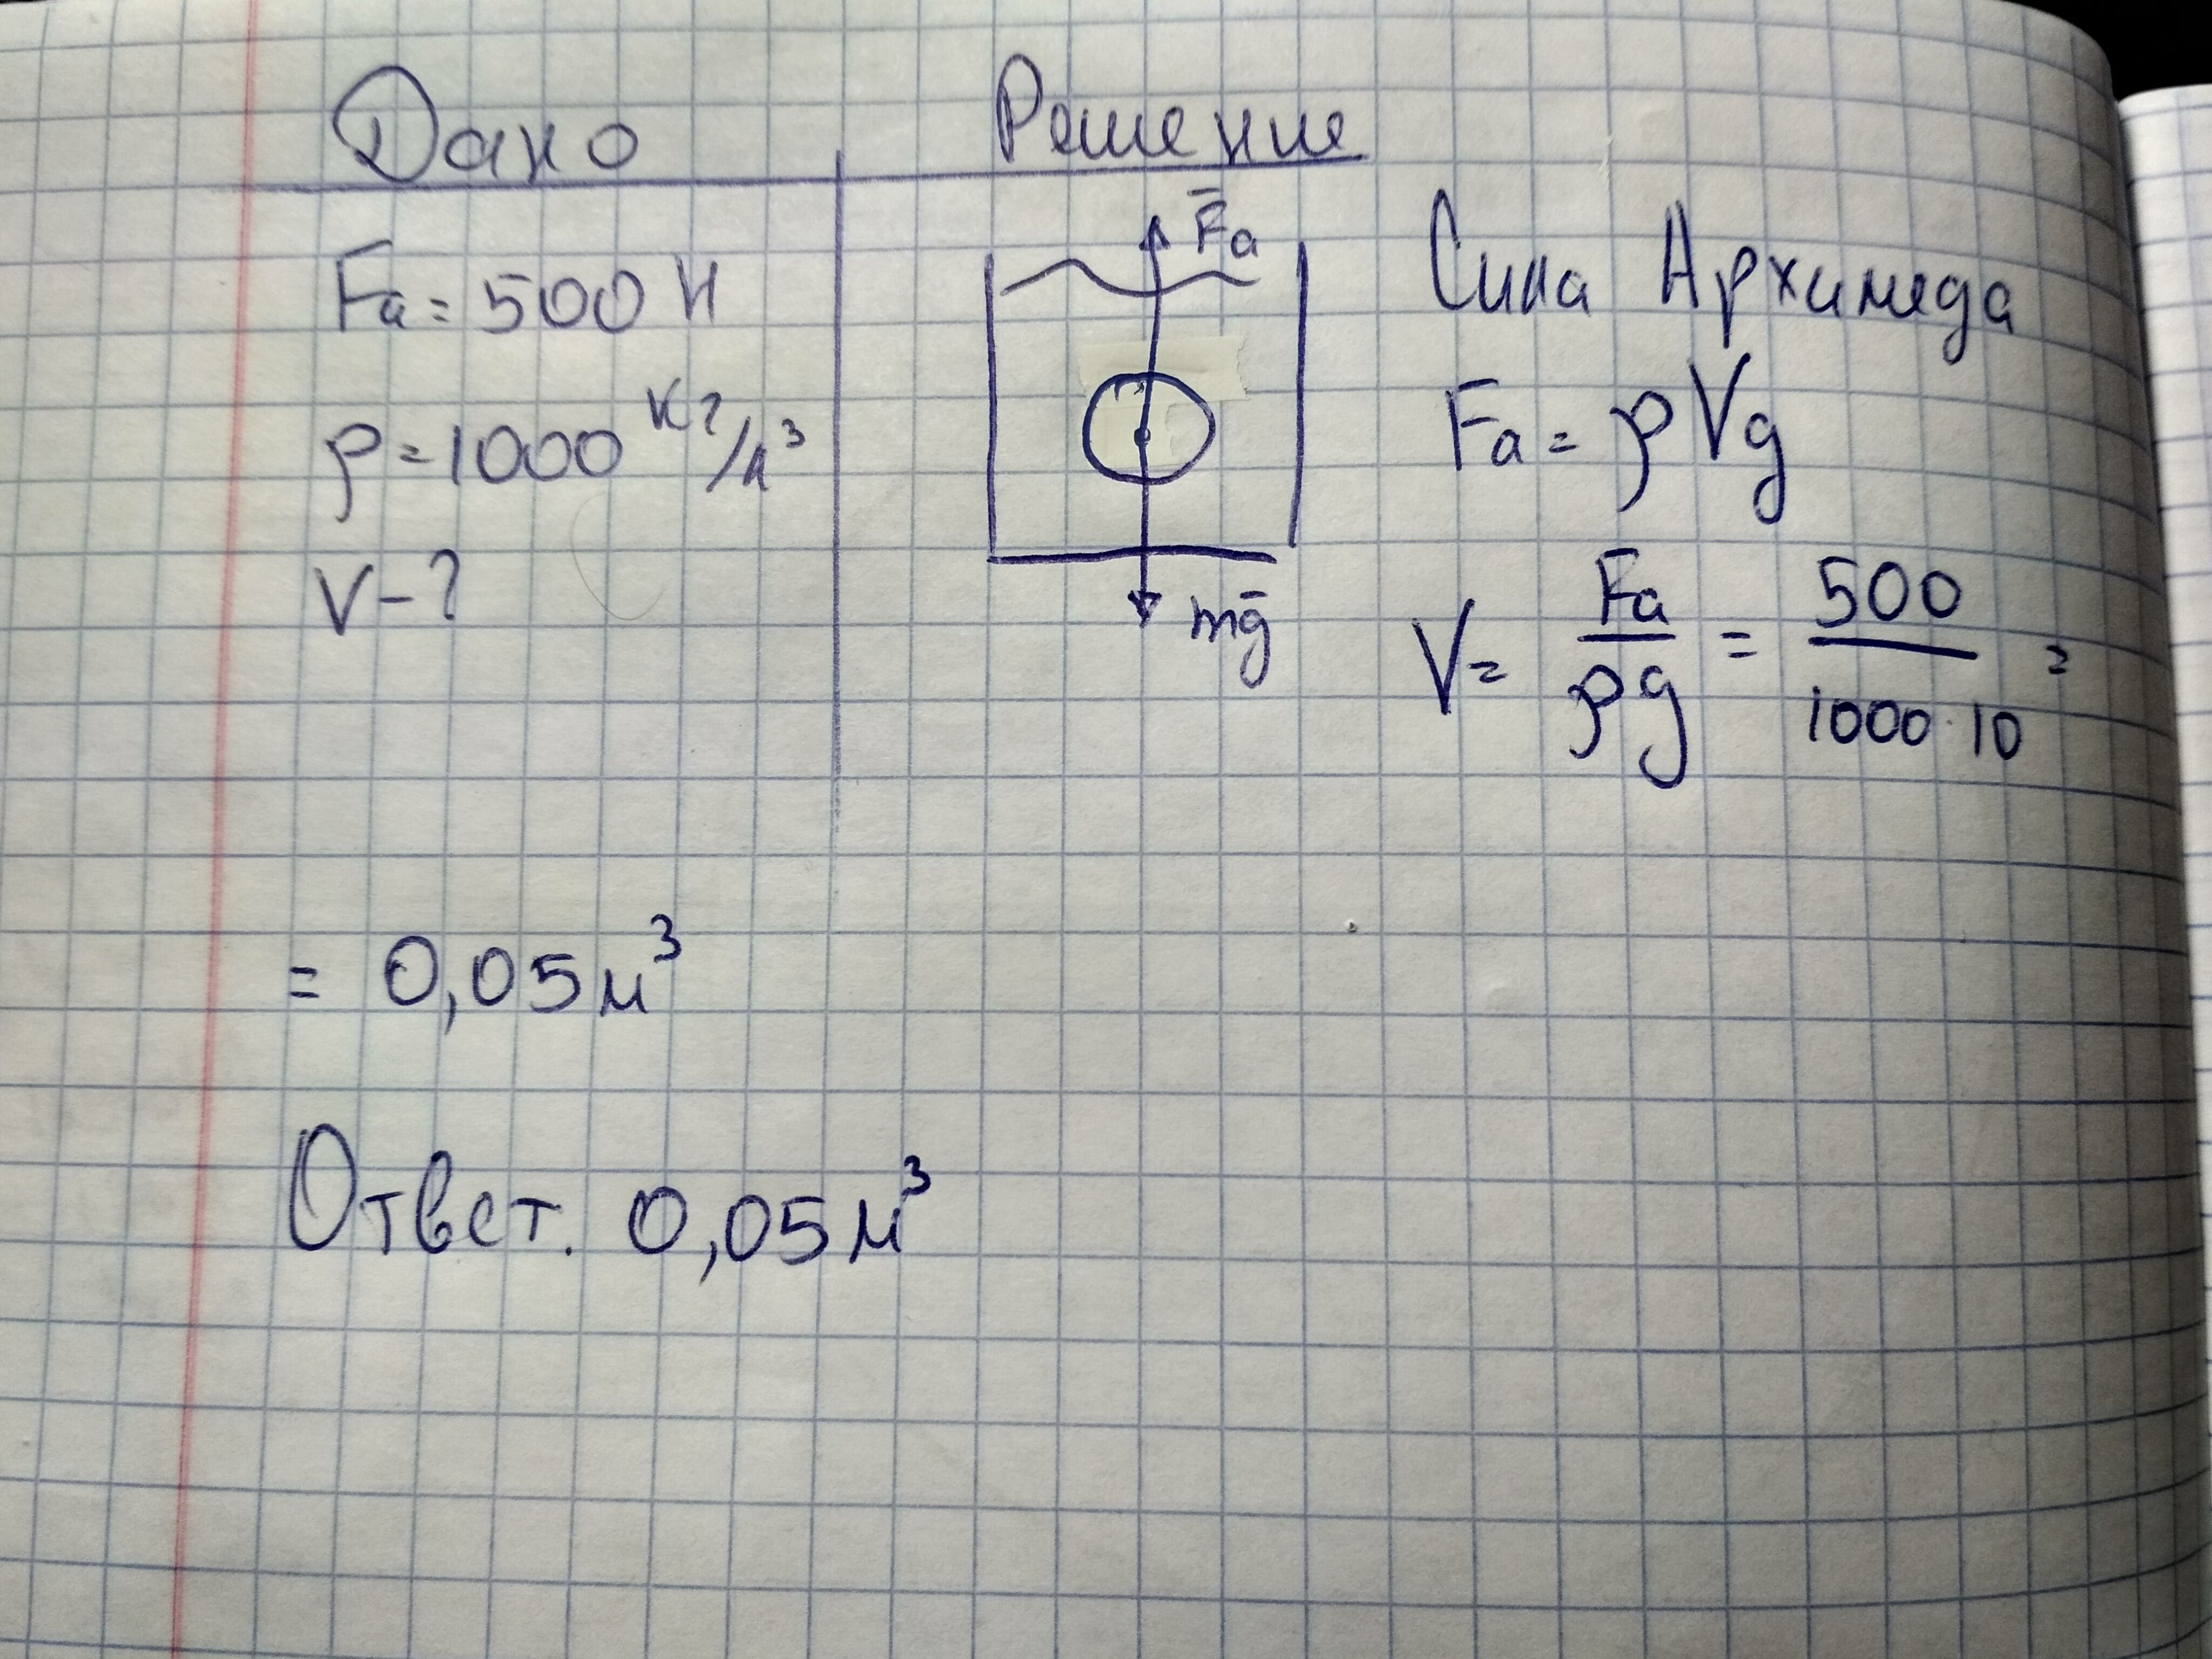 Дано
Решение
Fa = 500 Н
ρ = 1000 кг/м³
V - ?
F̄a
mḡ
Сила Архимеда
Fa = ρVg
V = Fa/ρg = 500/1000·10 =
= 0,05 м³
Ответ. 0,05 м³